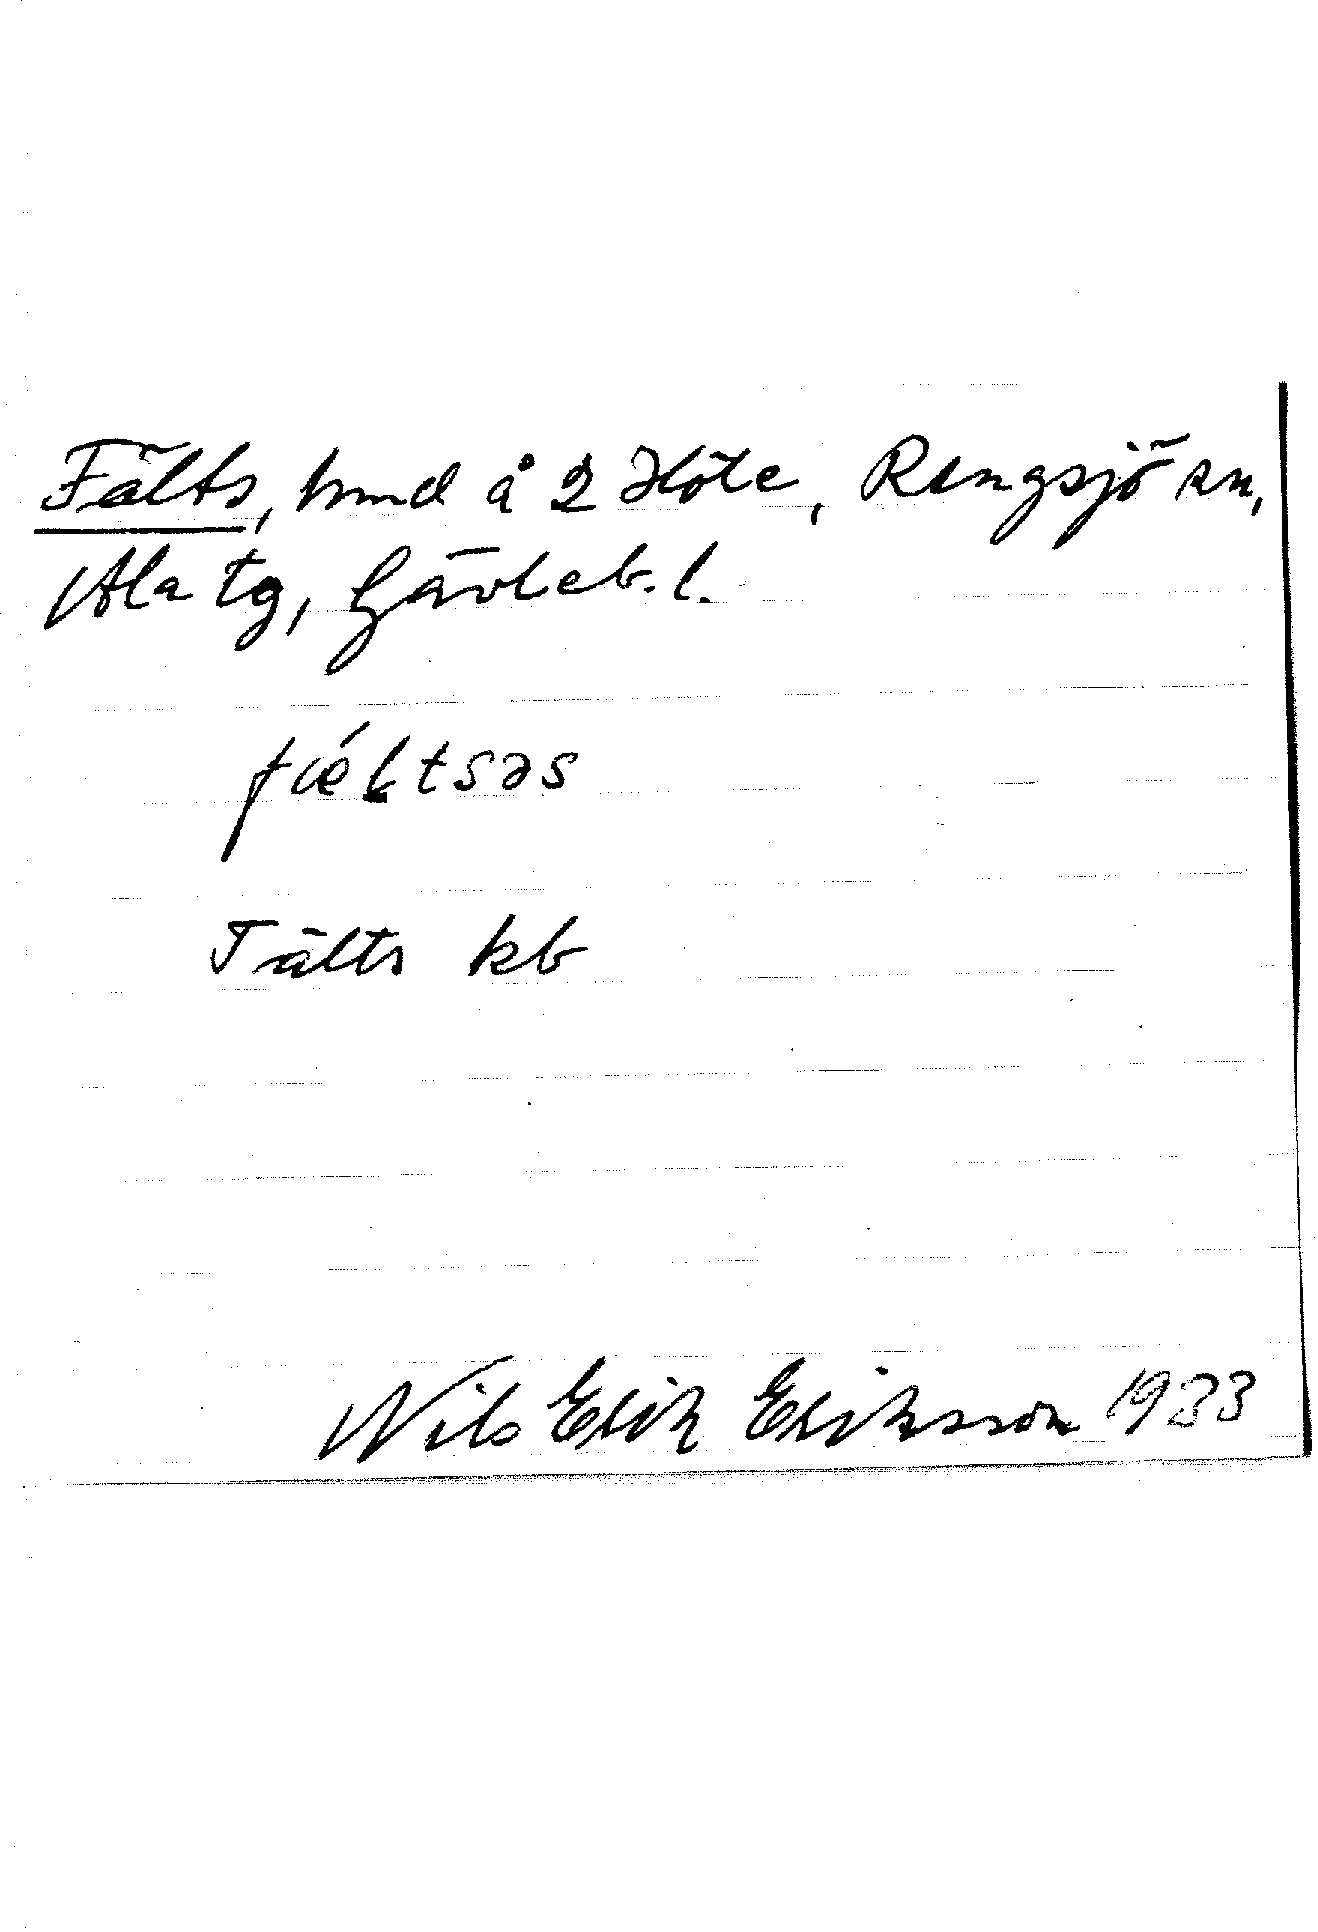 Fälts, hmd å 2 Höle, Rengsjö sn,
Ala tg, Gävleb. l.
fǽltsəs
Fälts kb
Nils Erik Eriksson 1933